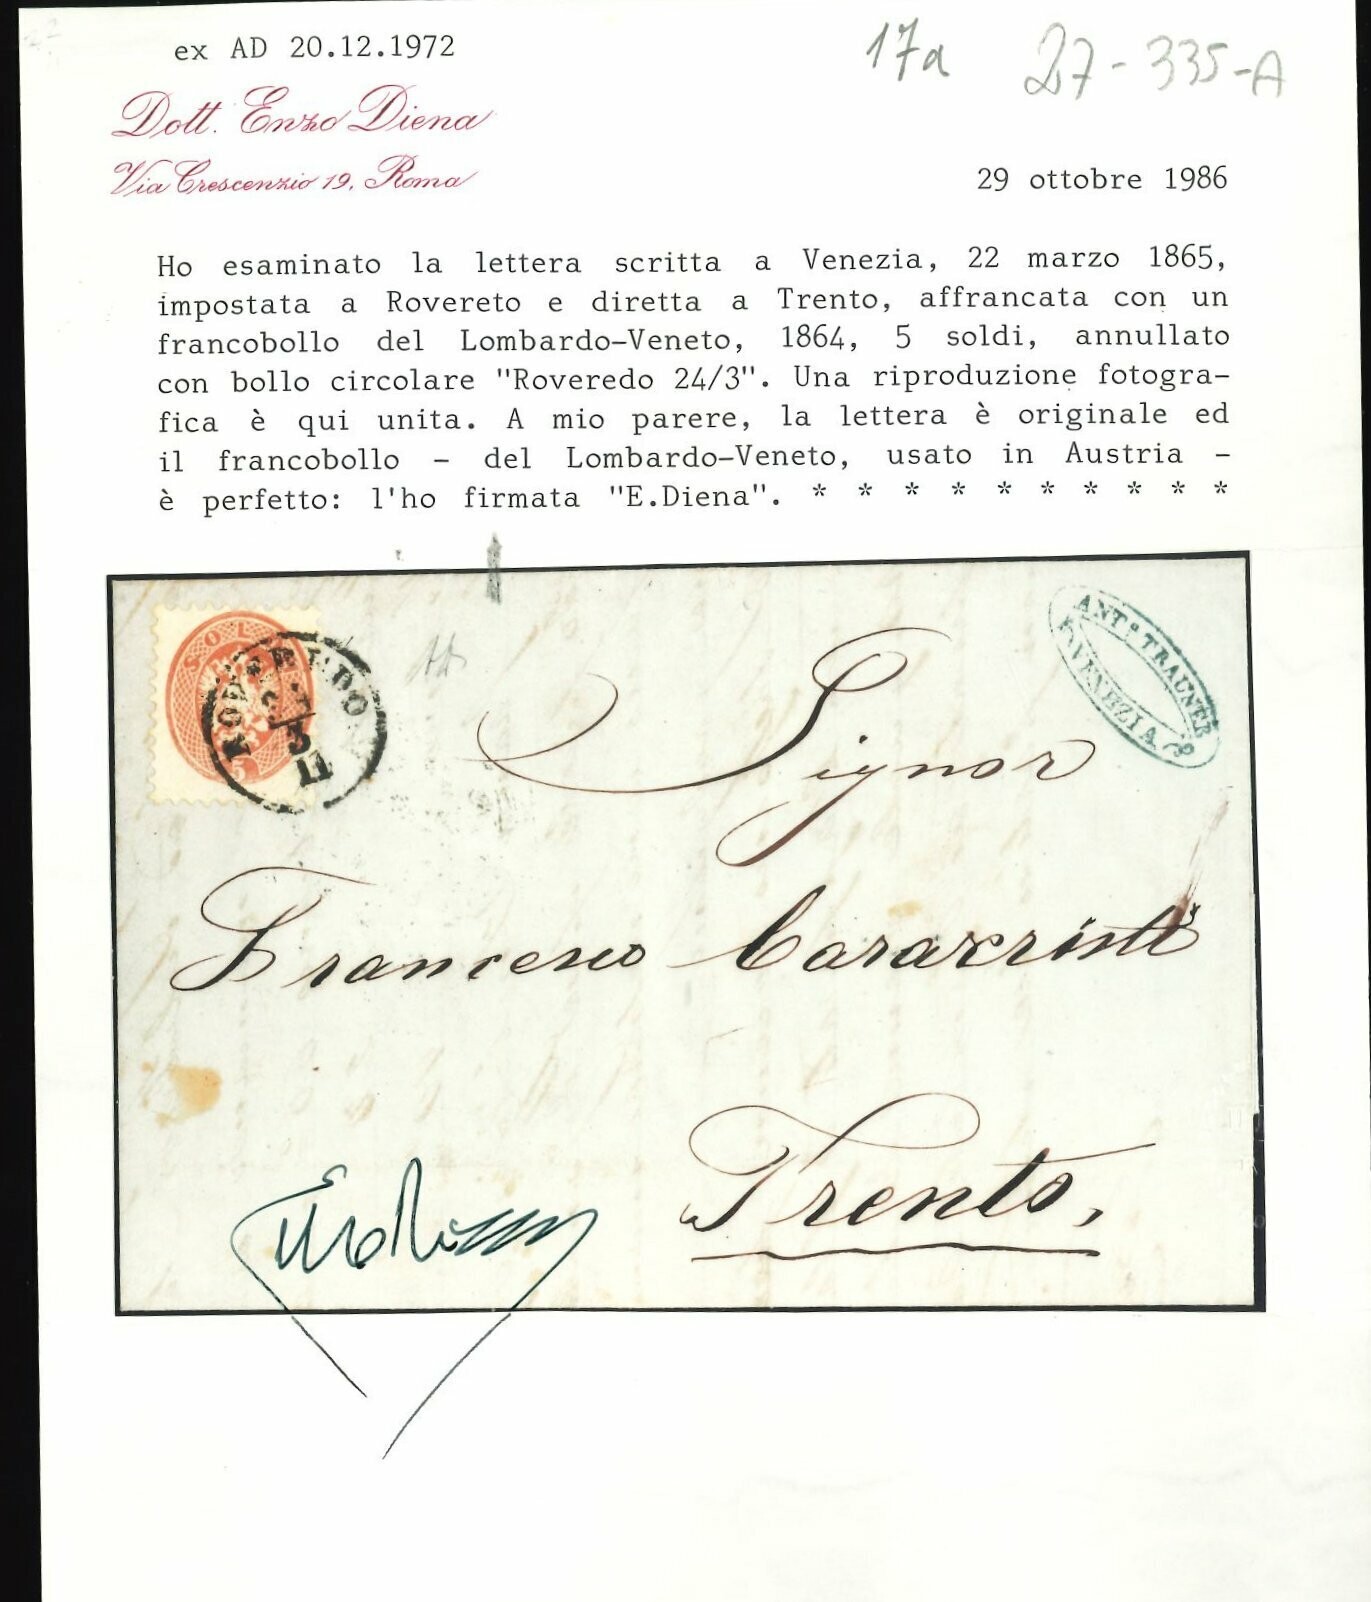 ex AD 20.12.1972
17a 27-335-A
Dott. Enzo Diena
Via Crescenzio 19, Roma
29 ottobre 1986
Ho esaminato la lettera scritta a Venezia, 22 marzo 1865,
impostata a Rovereto e diretta a Trento, affrancata con un
francobollo del Lombardo-Veneto, 1864, 5 soldi, annullato
con bollo circolare "Roveredo 24/3". Una riproduzione fotogra-
fica è qui unita. A mio parere, la lettera è originale ed
il francobollo - del Lombardo-Veneto, usato in Austria -
è perfetto: l'ho firmata "E.Diena". * * * * * * * * * *
SOL
5
ROVEREDO
3
ANTº TRAUNER
VENEZIA
Signor
Francesco
Trento,